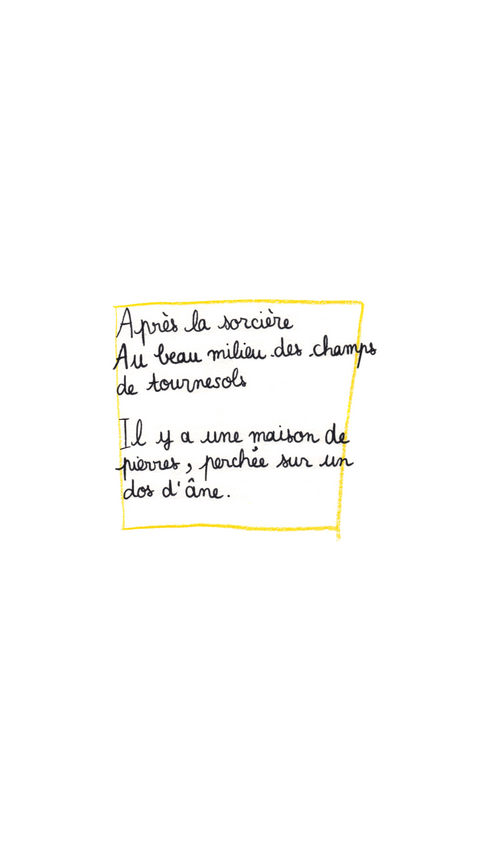 Après la sorcière
Au beau milieu des champs
de tournesols
Il y a une maison de
pierres, perchée sur un
dos d'âne.